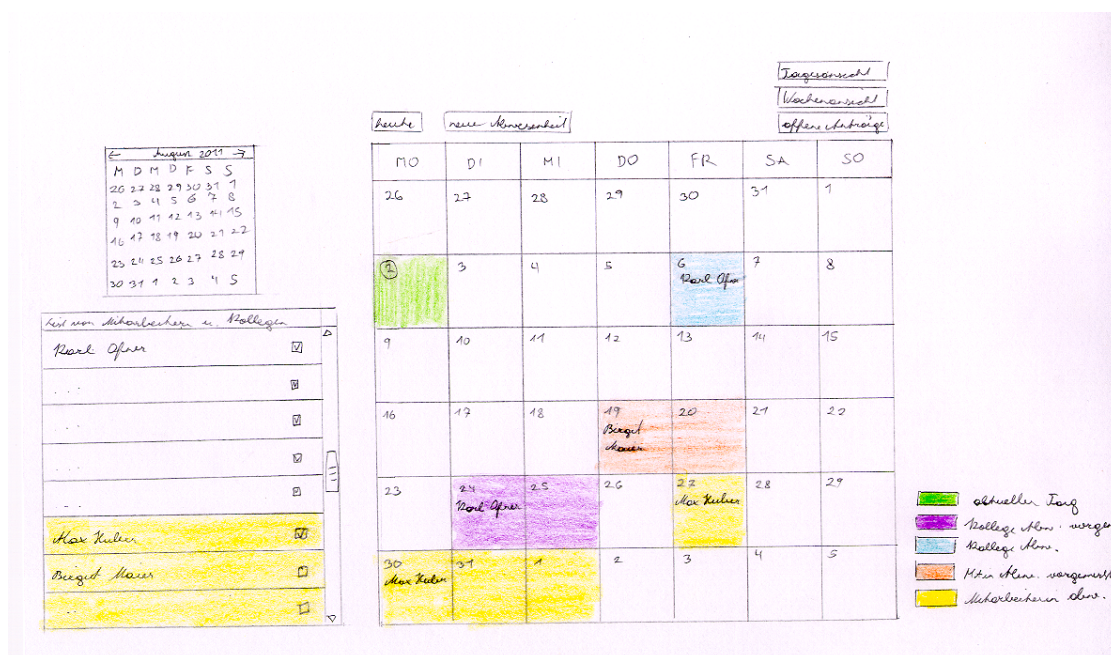 Tagesansicht
Wochenansicht
heute neue Abwesenheit offene Anträge
← August 2011 →
M D M D F S S
26 27 28 29 30 31 1
2 3 4 5 6 7 8
9 10 11 12 13 14 15
16 17 18 19 20 21 22
23 24 25 26 27 28 29
30 31 1 2 3 4 5
List von Mitarbeitern u. Kollegen
Karl Ofner
...
...
...
...
Max Huber
Birgit Maier
...
MO DI MI DO FR SA SO
26 27 28 29 30 31 1
2 3 4 5 6 7 8
Karl Ofner
9 10 11 12 13 14 15
16 17 18 19 20 21 22
Birgit
Maier
23 24 25 26 27 28 29
Karl Ofner Max Huber
30 31 1 2 3 4 5
Max Huber
aktueller Tag
Kollege Abw. vorge
Kollege Abw.
MA in Abw. vorgemerkt
Mitarbeiterin abw.